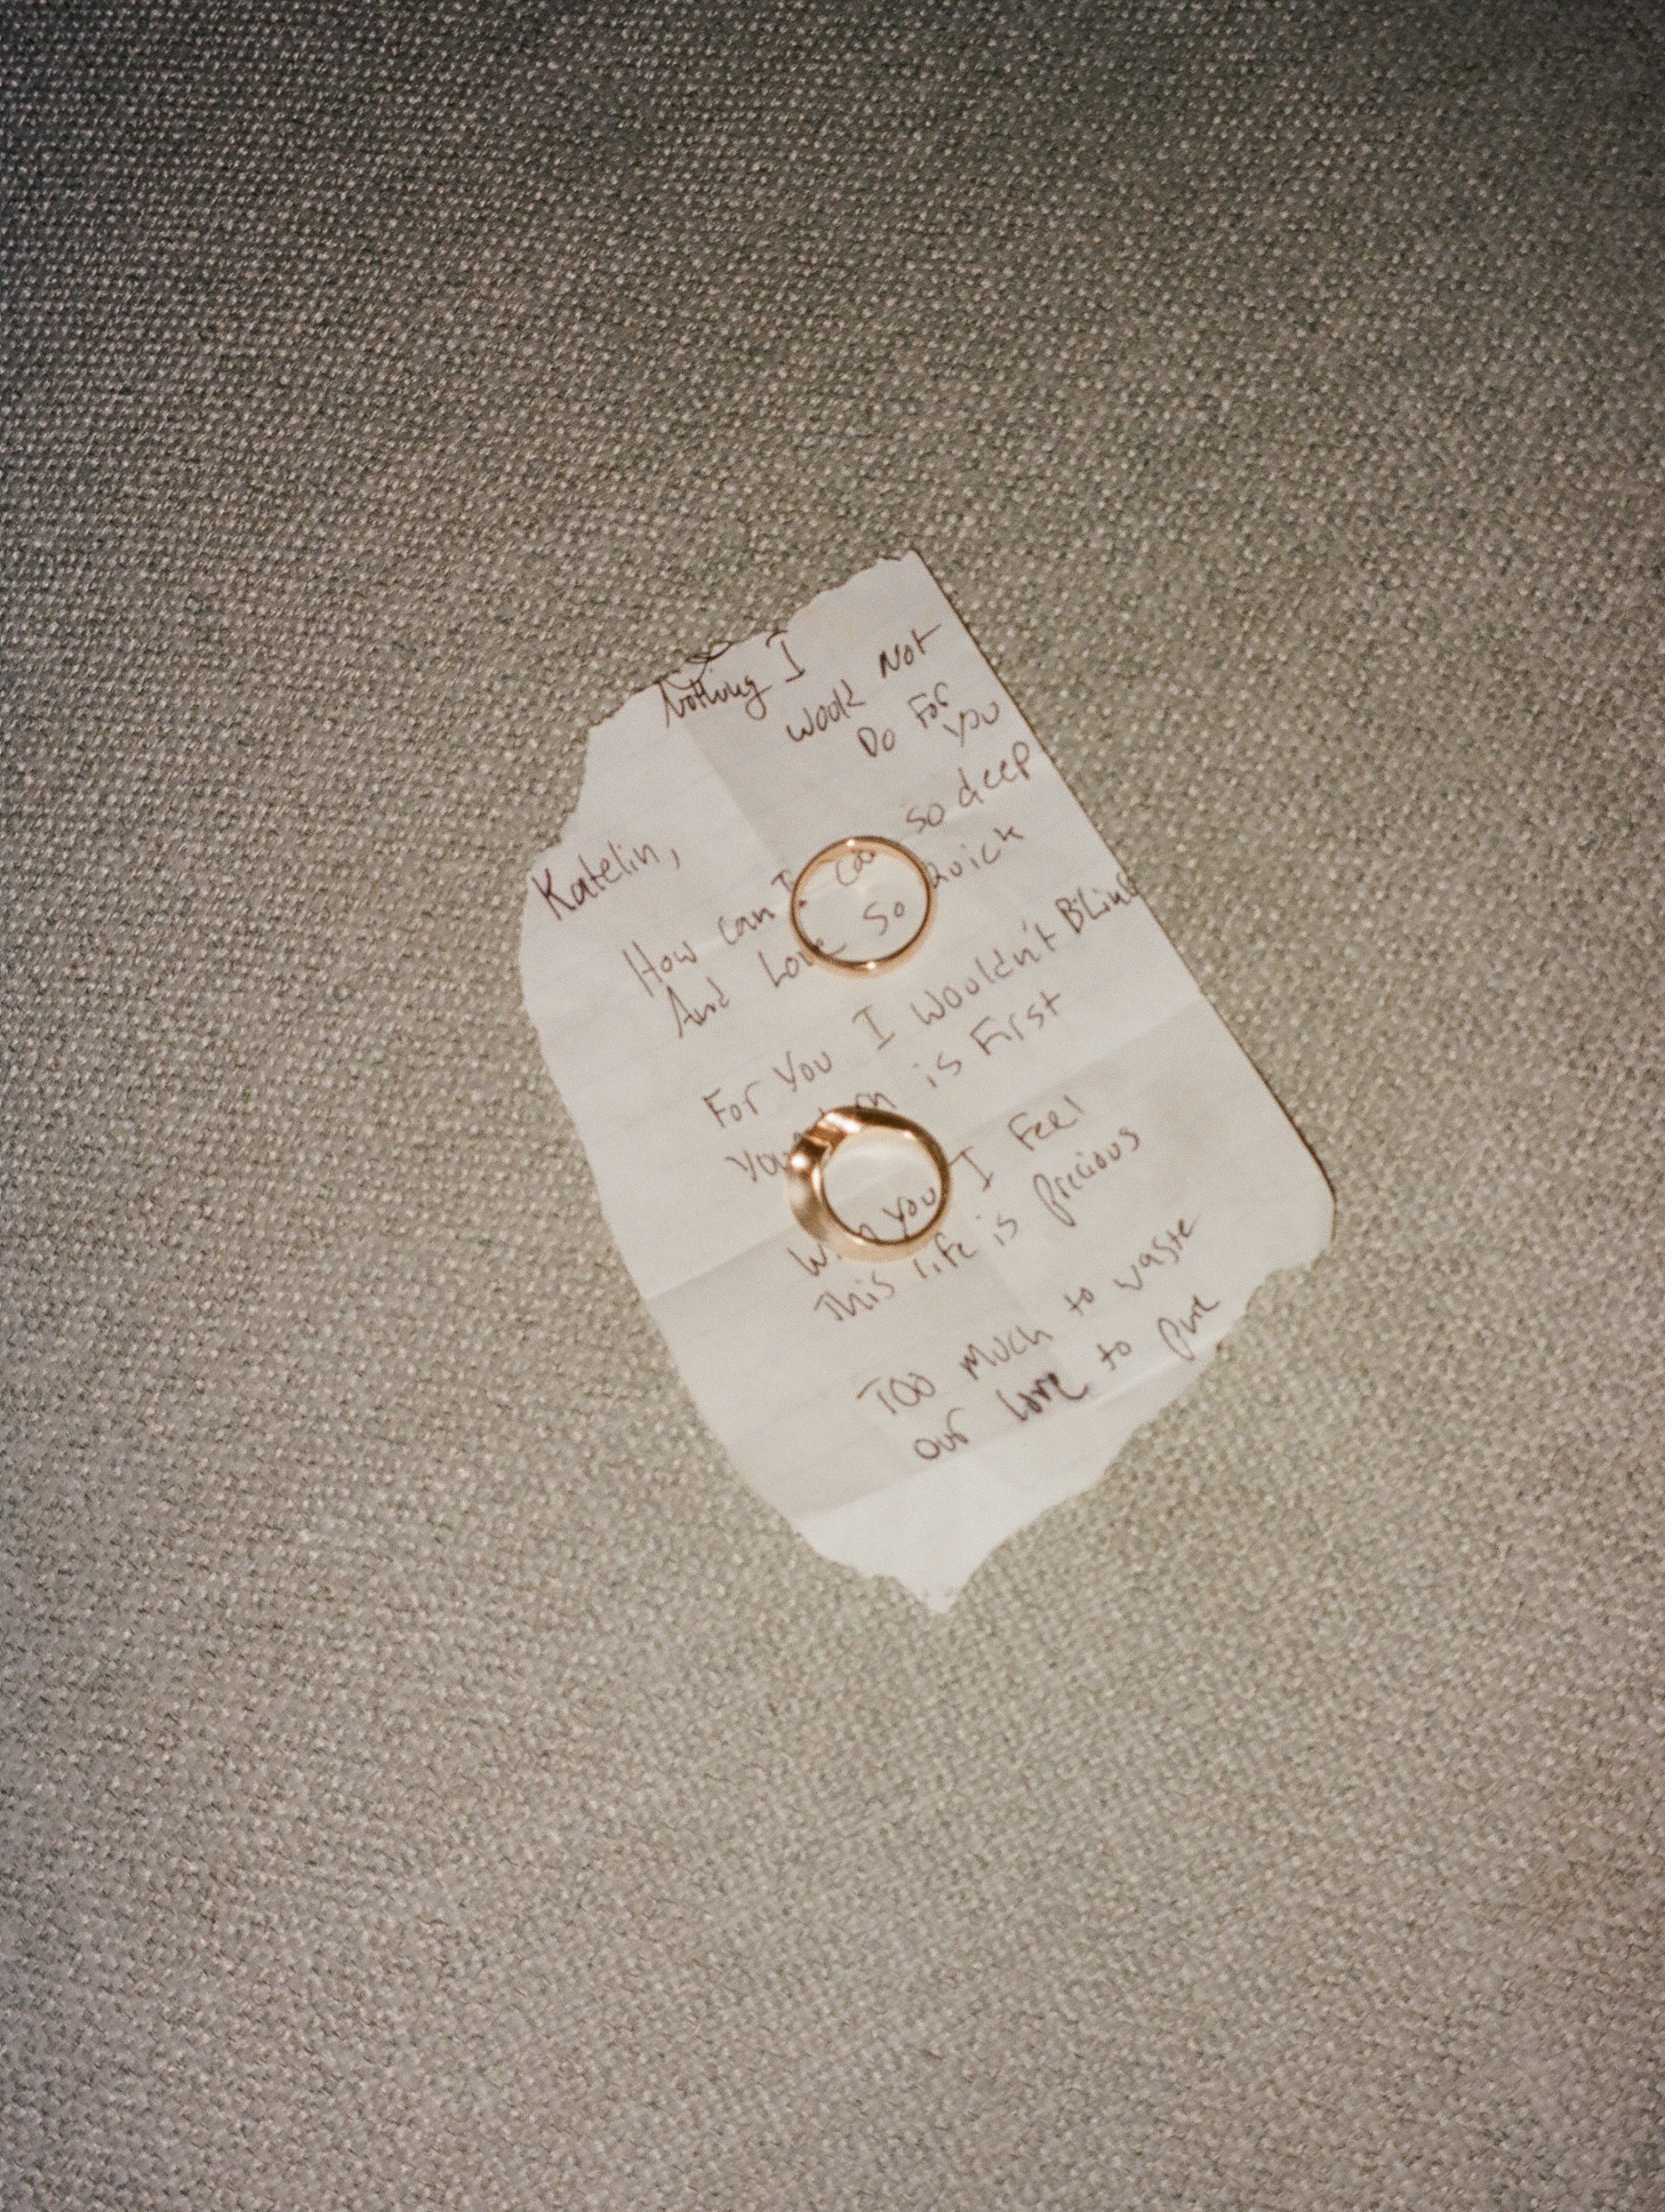 Nothing I
Would Not
Do For
you
Katelin,
How can I so deep
And Love so quick
For You I Wouldn't Blink
is First
With you I Feel
This life is precious
Too much to waste
our love to pure